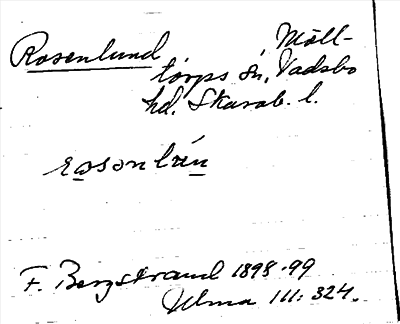 Rosenlund Mölltorps sn, Vadsbo
hd. Skarab. l.
rosənlún
F. Bergstrand 1898-99
Ulma 111:324.